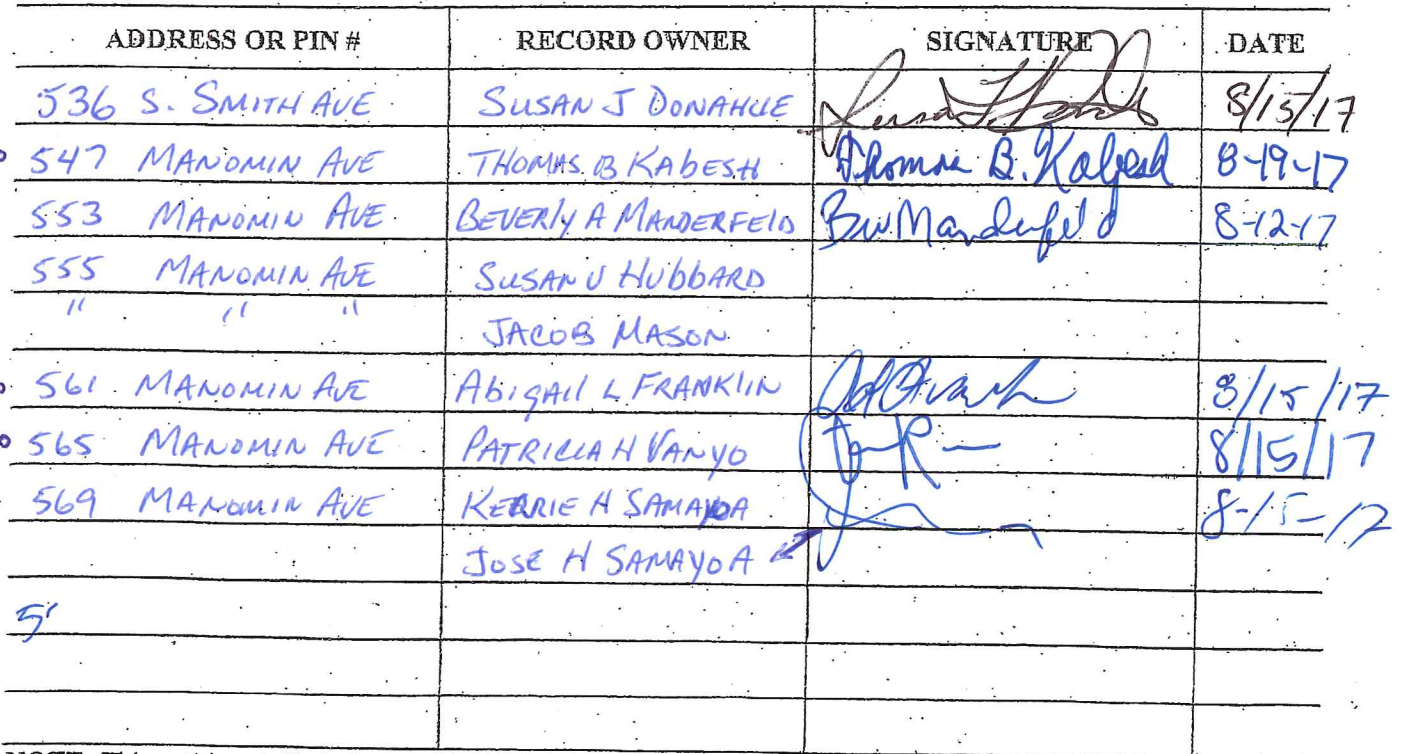 ADDRESS OR PIN # RECORD OWNER SIGNATURE DATE
536 S. SMITH AVE SUSAN J DONAHUE 8/15/17
547 MANOMIN AVE THOMAS B KABESH Thomas B. Kabesh 8-19-17
553 MANOMIN AVE BEVERLY A MANDERFELD Bev Manderfeld 8-12-17
555 MANOMIN AVE SUSAN V HUBBARD
" " " JACOB MASON
561 MANOMIN AVE AbigAil L FRANKLIN 8/15/17
565 MANOMIN AVE PATRICIA H VANYO 8/15/17
569 MANOMIN AVE KERRIE H SAMAYOA 8-15-17
JOSE H SAMAYOA
5'